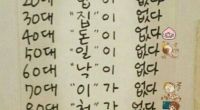 20대 " 이 없다
30대 "집"이 없다
40대 "돈"이 없다
50대 "일"이 없다
60대 "낙"이 없다
70대 "이"가 없다
80대 "처"가 없다